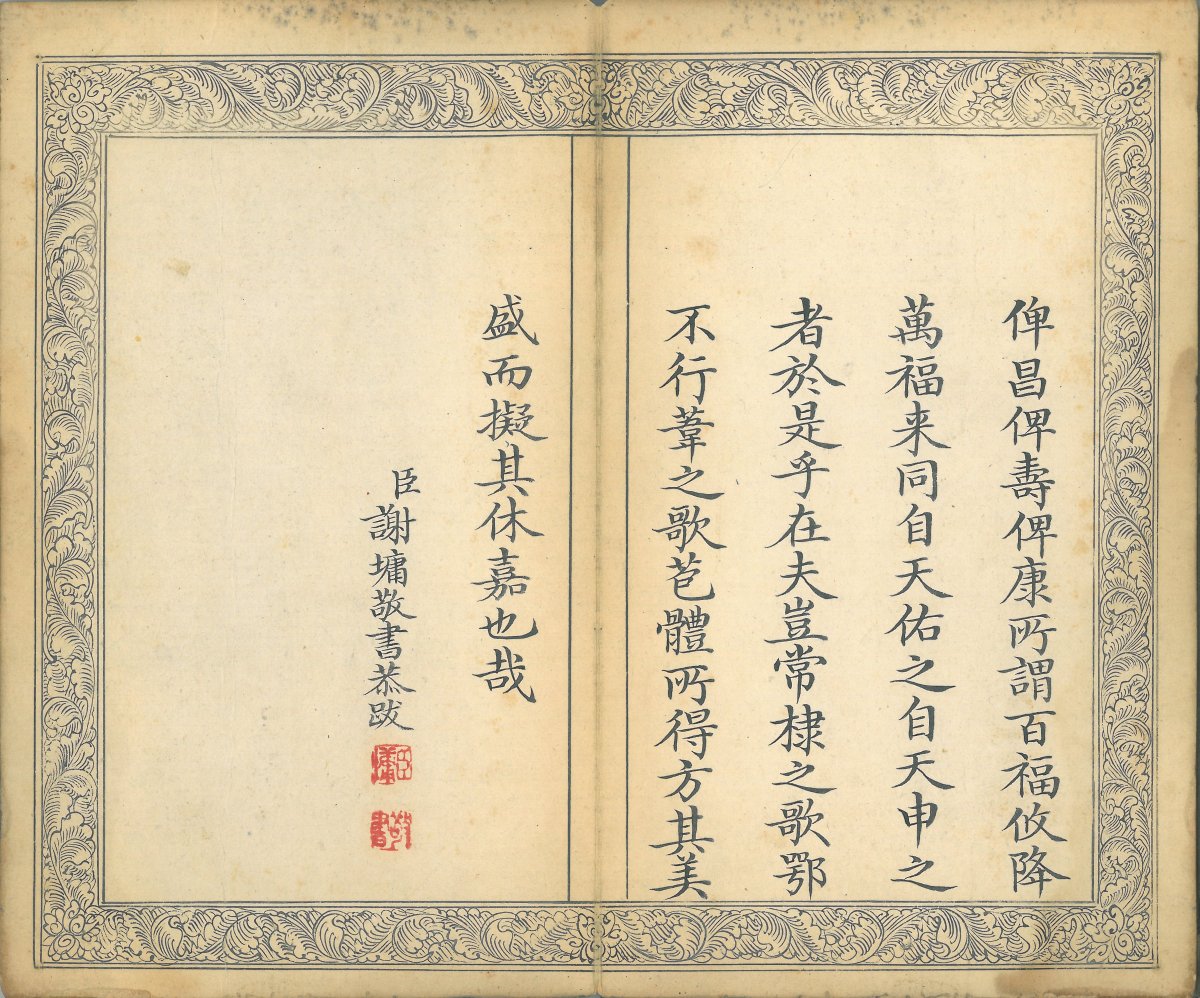 俾昌俾壽俾康所謂百福攸降
萬福来同自天佑之自天申之
者於是乎在夫豈常棣之歌鄂
不行葦之歌苞體所得方其美
盛而擬其休嘉也哉
臣謝墉敬書恭跋
臣墉
敬書